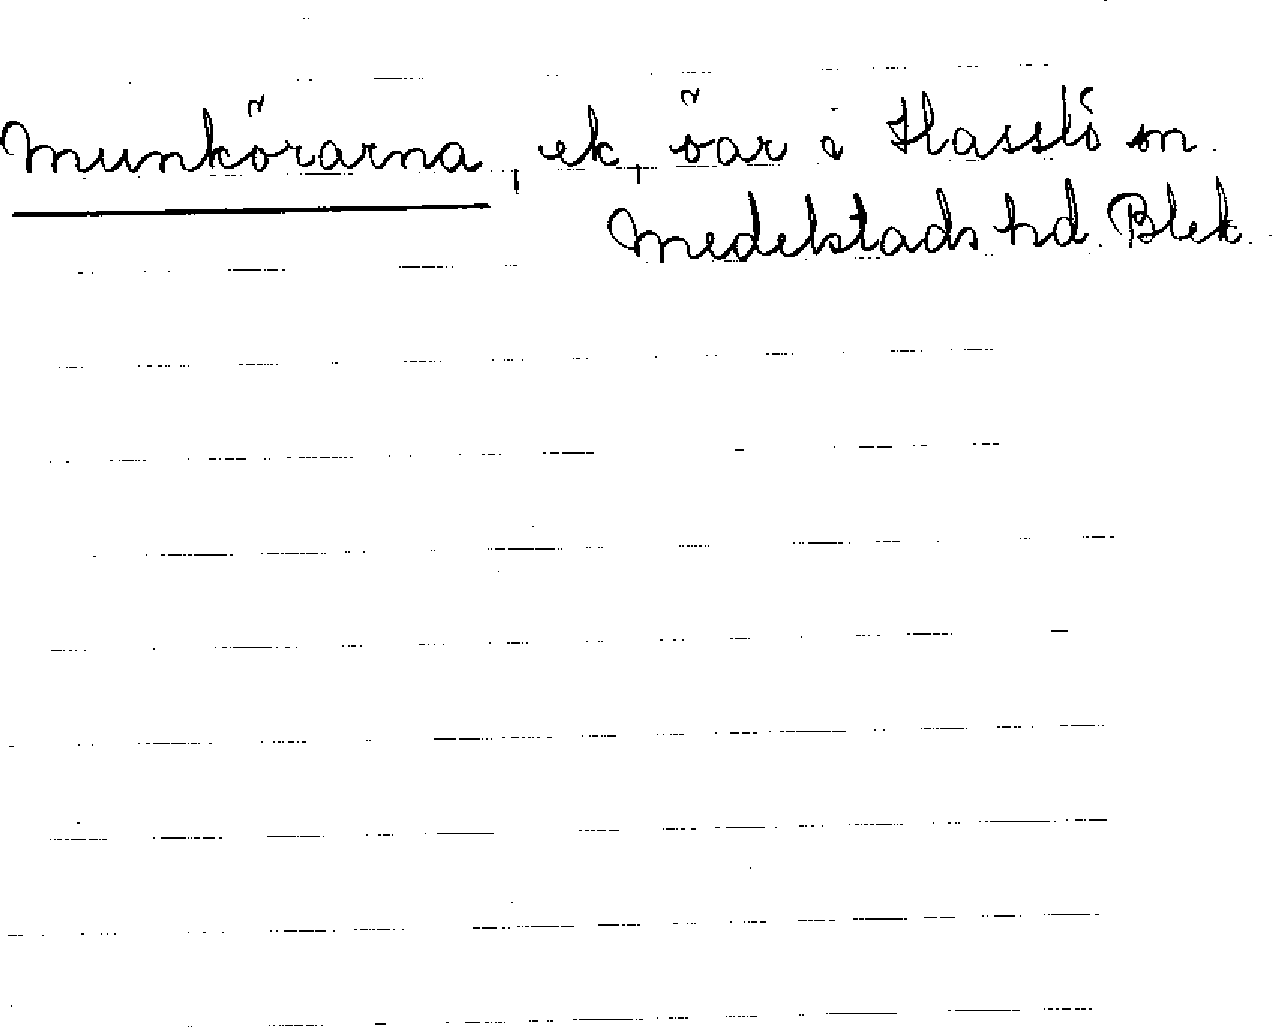 Munkörarna, ek, öar i Hasslö sn.
Medelstads hd. Blek.